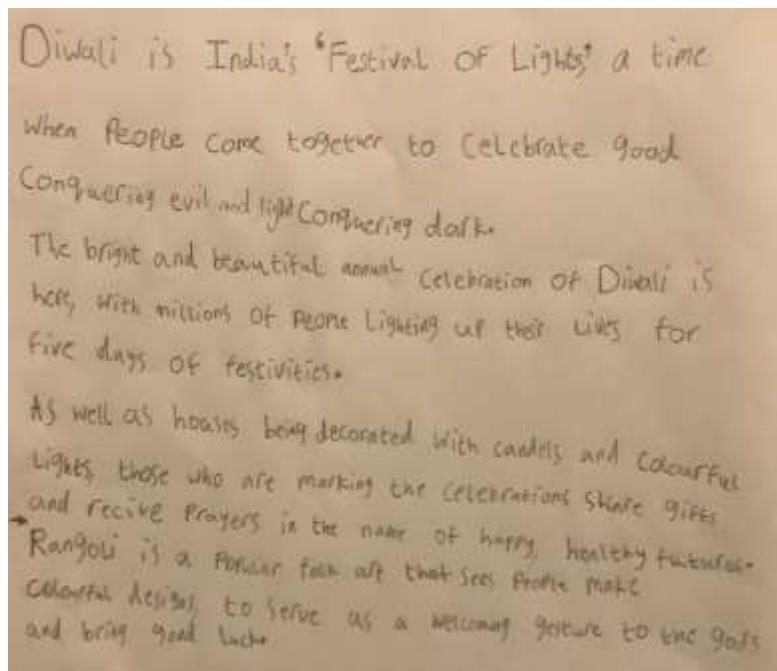 Diwali is India's 'Festival of Lights,' a time
when People come together to celebrate good
Conquering evil and light Conquering dark.
The bright and beautiful annual celebration of Diwali is
here, with millions of People Lighting up their Lives for
five days of festivities.
As well as houses being decorated with candels and colourful
Lights, those who are marking the celebrations share gifts
and recive Prayers in the name of happy, healthy futures.
Rangoli is a Popular folk art that sees People make
colourful designs, to serve as a welcoming gesture to the gods
and bring good luck.